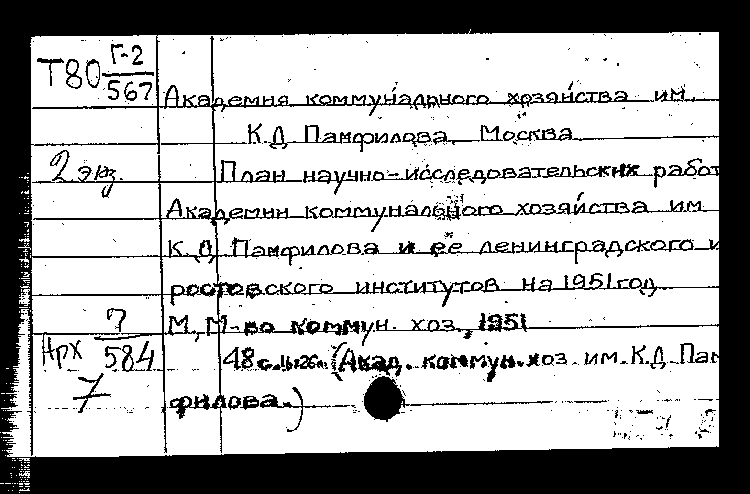 Т80 Г-2
567
Академия коммунального хозяйства им.
К.Д. Памфилова. Москва
2 экз.
План научно-исследовательских работ
Академии коммунального хозяйства им
К.Д. Памфилова и ее ленинградского и
ростовского институтов на 1951 год.
М., М-во коммун. хоз., 1951
Арх 7
584
48 с. (Акад. коммун. хоз. им. К.Д. Пам
7
филова.)